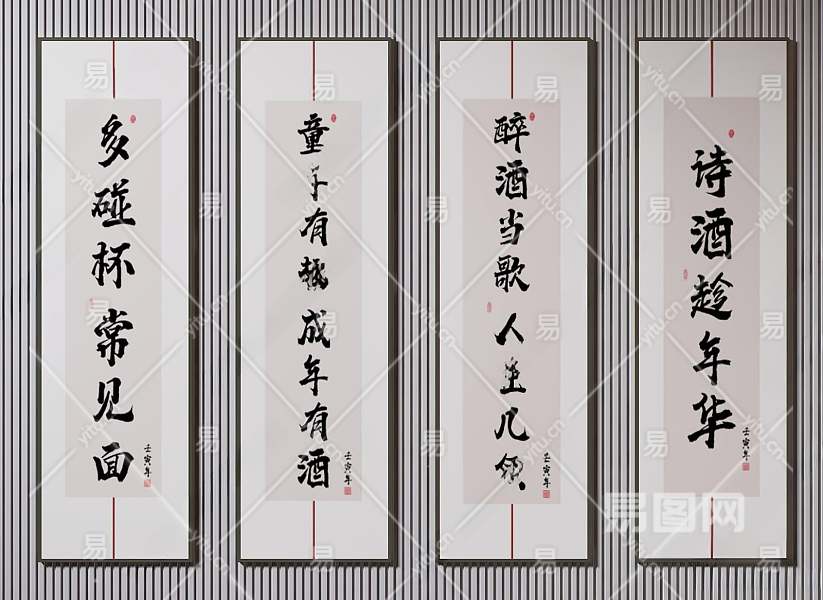 多碰杯常见面
壬寅年
童有成年有酒
壬寅年
醉酒当歌人几
壬寅年
诗酒趁年华
壬寅年
易图网
易
yitu.cn